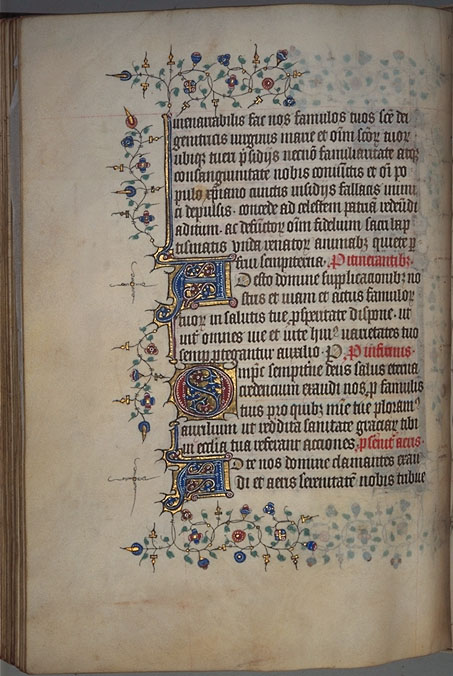 inenarrabilis fac nos famulos tuos sce dei
genitricis virginis marie et oim scor tuor
ubiqz tueri psidijs necno familiaritate atqz
consanguinitate nobis coniuctis et oi po
pulo xpiano cunctis insidijs fallacis inimi
ci depulsis. concede ad celestem patria redeudi
aditum. ac defuctor oim fidelium sacri bap
tismatis unda renator animabz quiete p
frui sempiterna. P itinerantibz.
A Desto domine supplicationibz no
stris et viam et actus famulor
tuor in salutis tue psperitate dispone. ut
int omnes vie et vite hui9 varietates tuo
semp ptegantur auxilio. P. P infirmis.
O mpie sempiterne deus salus eterna
credencium exaudi nos p famulis
tuis pro quibz mie tue ploram9
auxilium ut reddita sanitate graciar tibi
in ecclia tua referant actiones. p serenitate aeris.
A D te nos domine clamantes exau
di et aeris serenitate nobis tribue